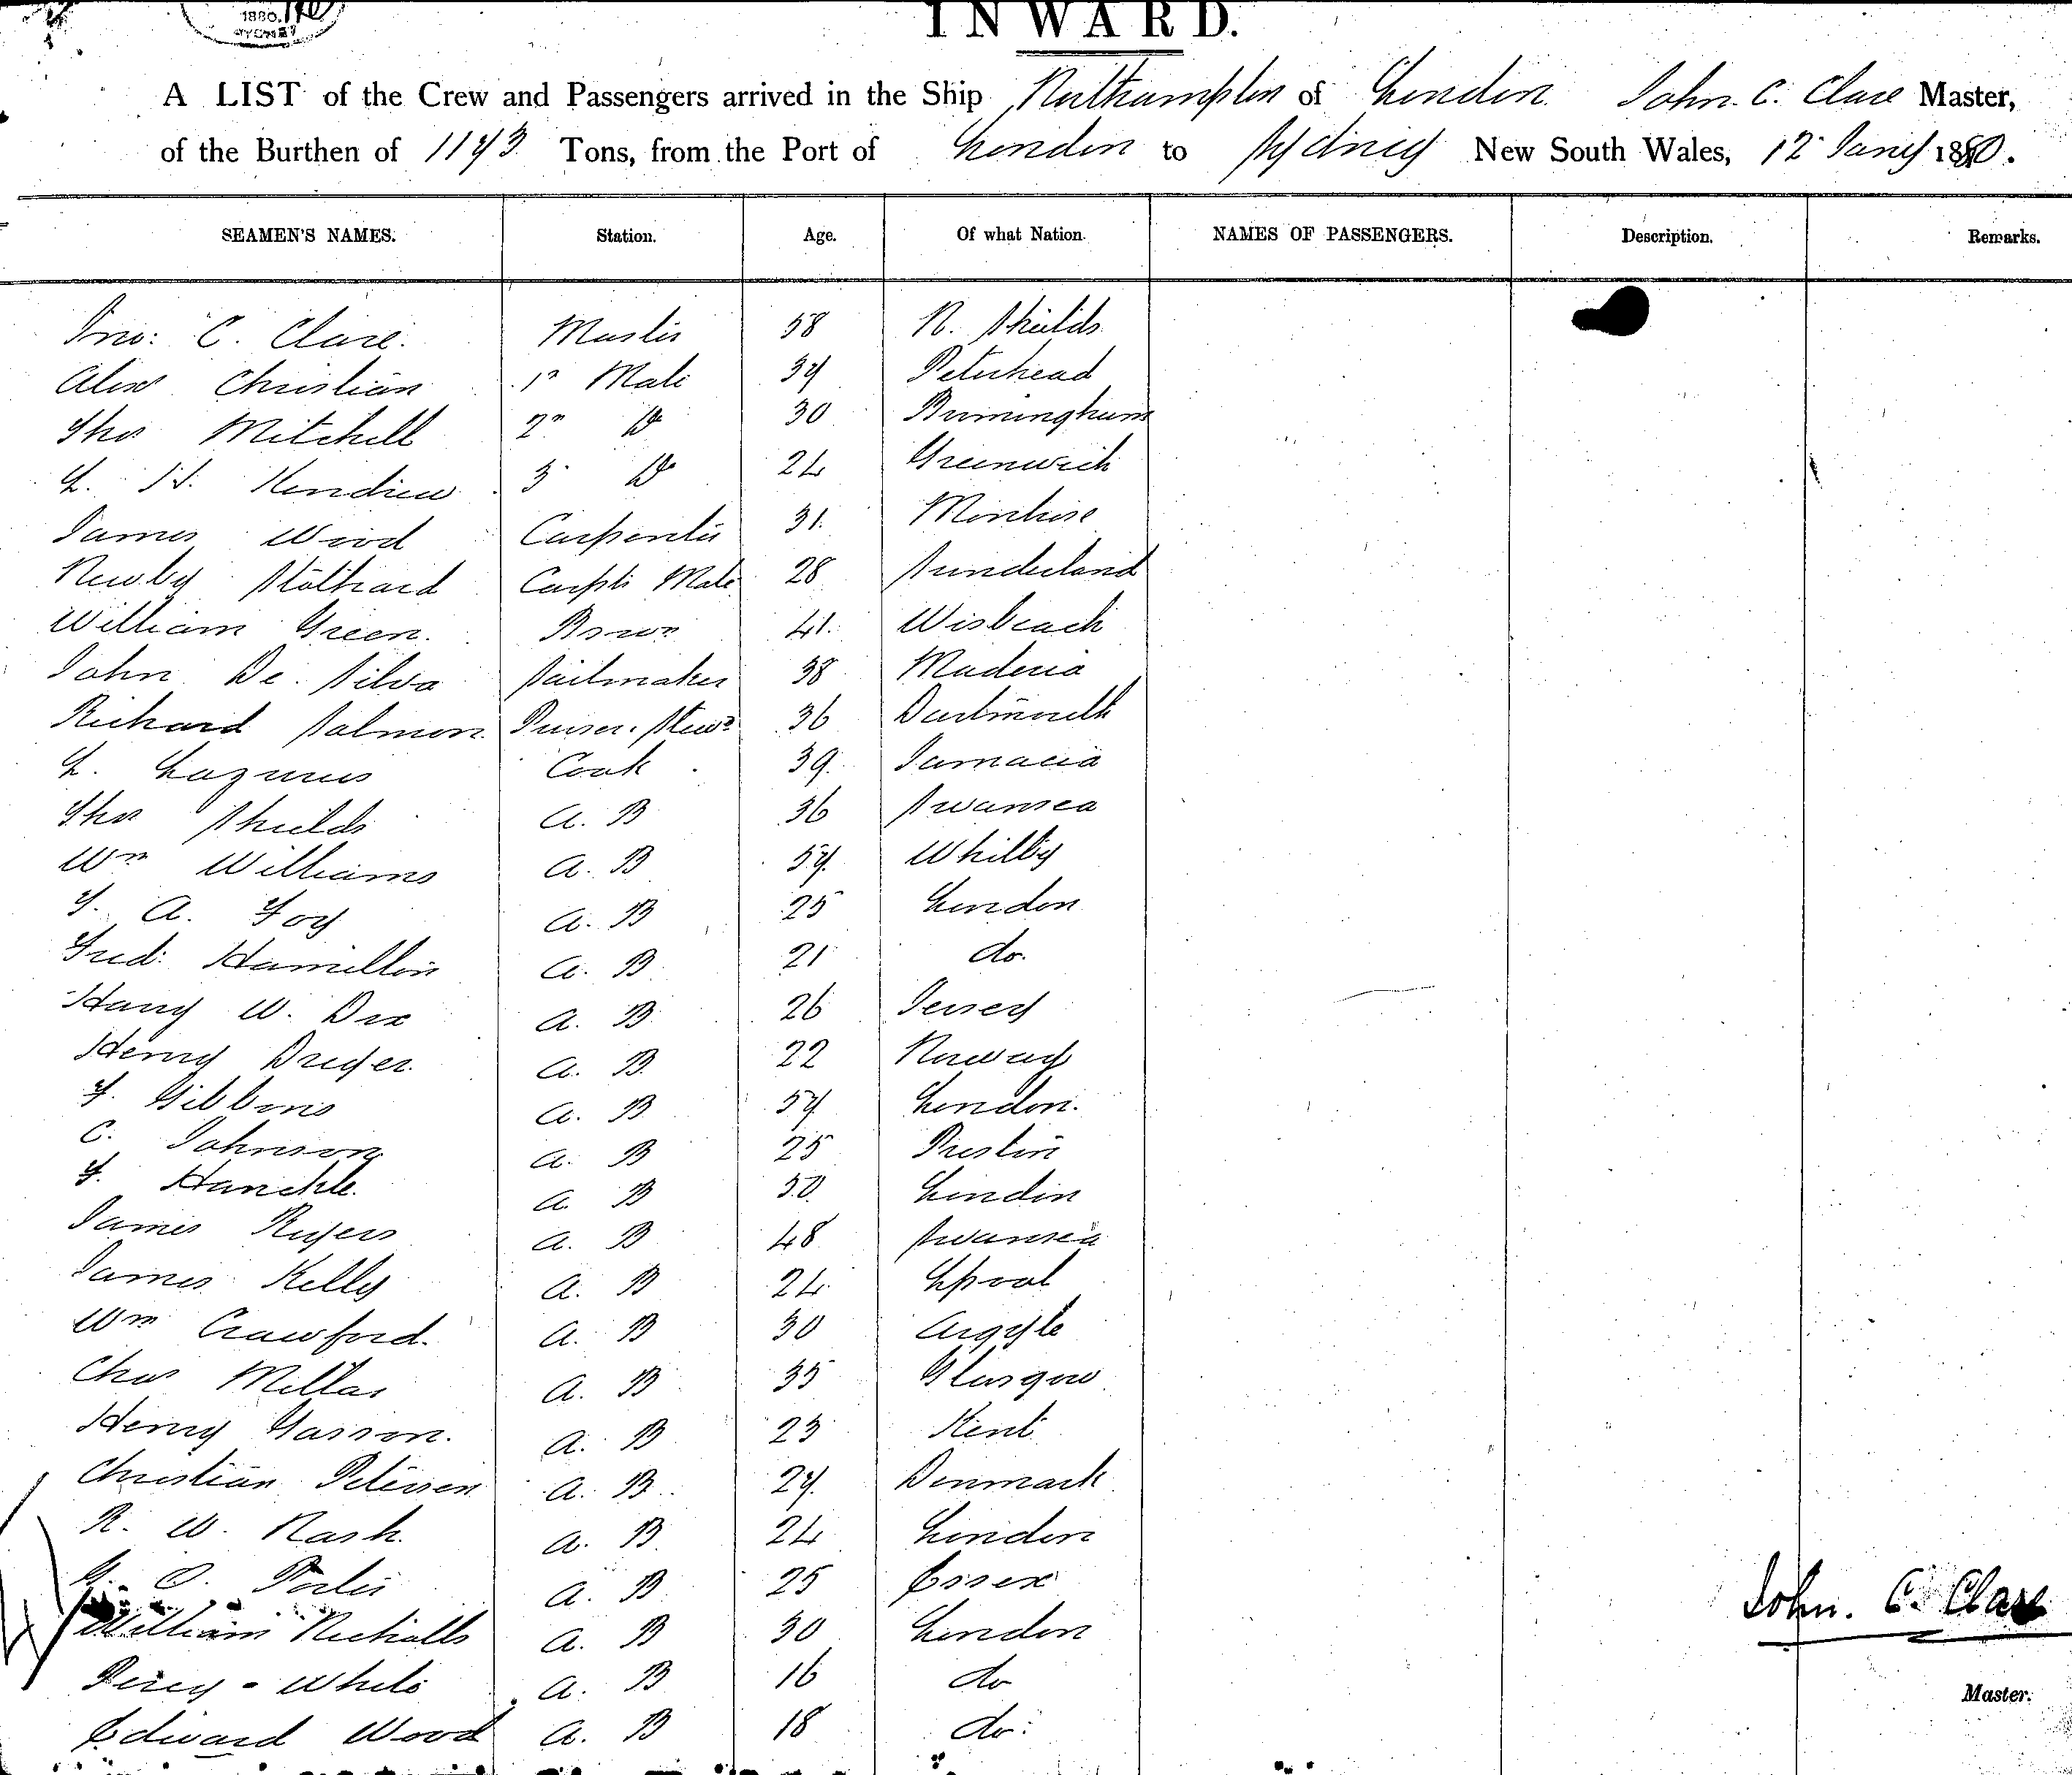 1880.
SYDNEY
INWARD.
A LIST of the Crew and Passengers arrived in the Ship Northampton of London John. C. Clare Master,
of the Burthen of 1143 Tons, from the Port of London to Sydney New South Wales, 12 Jany 1880.
SEAMEN'S NAMES. Station. Age. Of what Nation. NAMES OF PASSENGERS. Description. Remarks.
Jno: C. Clare. Master 58 N. Shields
Alexr Christian 1st Mate 34 Peterhead
Thos Mitchell 2nd Do 30 Birmingham
L. H. Kendrew 3 Do 24 Greenwich
James Wood Carpenter 31. Montrose
Newby Stothard Carptr Mate 28 Sunderland
William Green. Bosun 41. Wisbeach
John De. Silva Sailmaker 38 Maderia
Richard Salmon Purser. Stewd 36 Dartmouth
L. Lazurus Cook 39. Jamacia
Thos Shields A. B 36 Swansea
Wm Williams A. B 54 Whitby
T. A. Foy A. B 25 London
Fred: Hamilton A. B 21 do.
Harry W. Dix A. B 26 Jersey
Henry Dreyer. A. B. 22 Norway
F. Gibbons A. B 54 London.
C. Johnson A. B 25 Preston
F. Hanckle. A. B 50 London
James Rogers A. B 48 Swansea
James Kelly A. B 24 Lpool
Wm Crawford. A. B 30 Argyle
Chas Millar A. B 35 Glasgow
Henry Gasson. A. B 23 Kent
Christian Petersen A. B. 24 Denmark
R. W. Nash. A. B. 24 London
C. Porter A. B 25 Essex
William Nicholls A. B 30 London
Percy - White A. B 16 do
Edward Wood A. B 18 do:
John. C. Clare
Master.